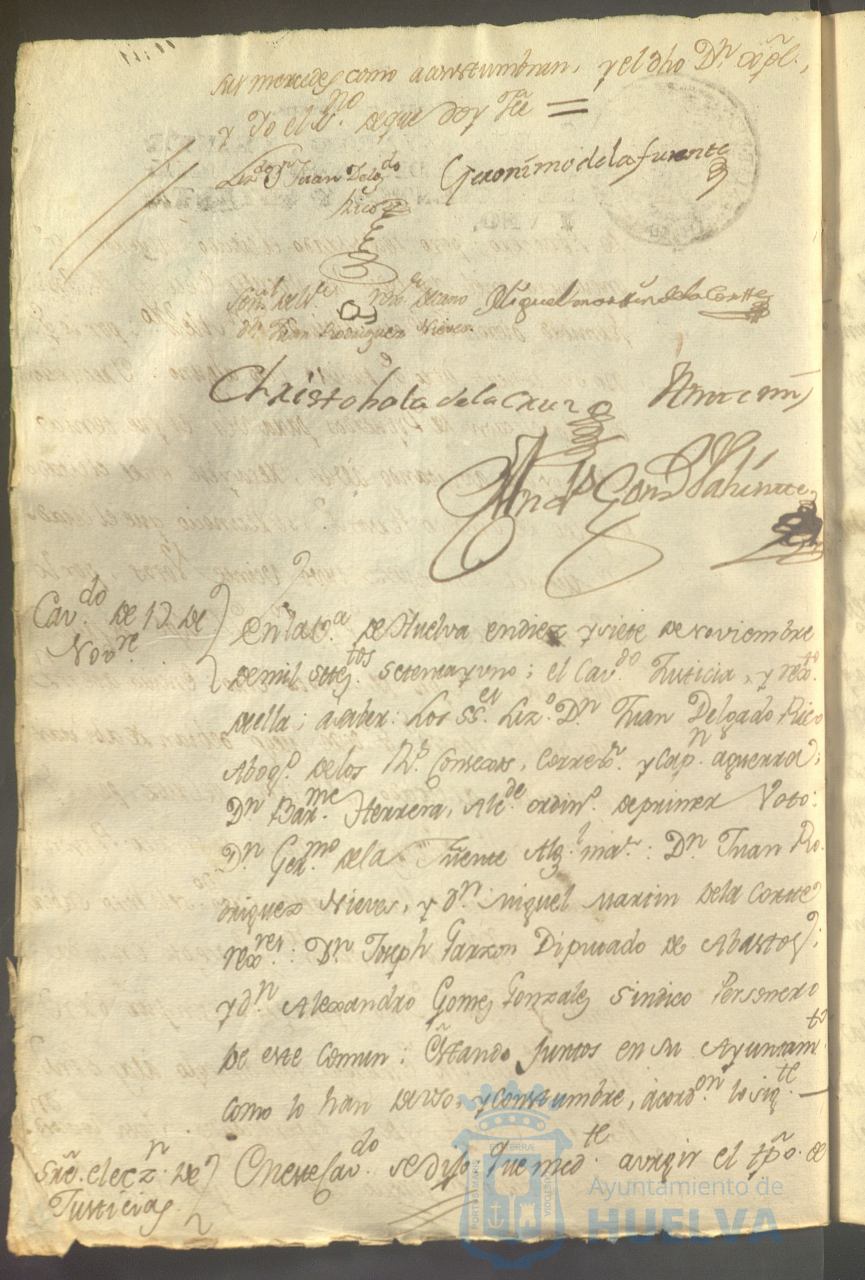 sus mercedes como acostumbran, y el dho Dn
y Yo el ess.no de que doy Fee =
Lizdo Dn Juan Delgdo
Rico
Geronimo de la fuente
Dn Juan Rodriguez Nieves
Miguel martin de la Corte
Christobal de la Cruz
Ante mi
Cavdo de 17 de
Novre
En la Va de Huelva en diez y siete de Noviembre
de mil settos setenta y uno; el Cavdo Justicia, y rexto
de ella; a saber: Los SSes Lizdo Dn Juan Delgado Rico
Abogdo de los Rs Consexos, Corregr y Capn aguerra;
Dn Barme Herrera, Alcde ordino de primer Voto:
Dn Germo de la Fuente Algl mar: Dn Juan Ro
driguez Nieves, y dn Miguel Martin de la Corte
rexres: Dn Joseph Garzon Diputado de Abastos;
y dn Alexandro Gomez Gonzalez Sindico Personero
de este Comun: Estando juntos en su Ayuntamto
como lo han de uso, y constumbre, acordon lo sigte
Sre eleczn de
Justicias
En este Cavdo se dijo Que medte a urgir el tpo de
Ayuntamiento de
HUELVA